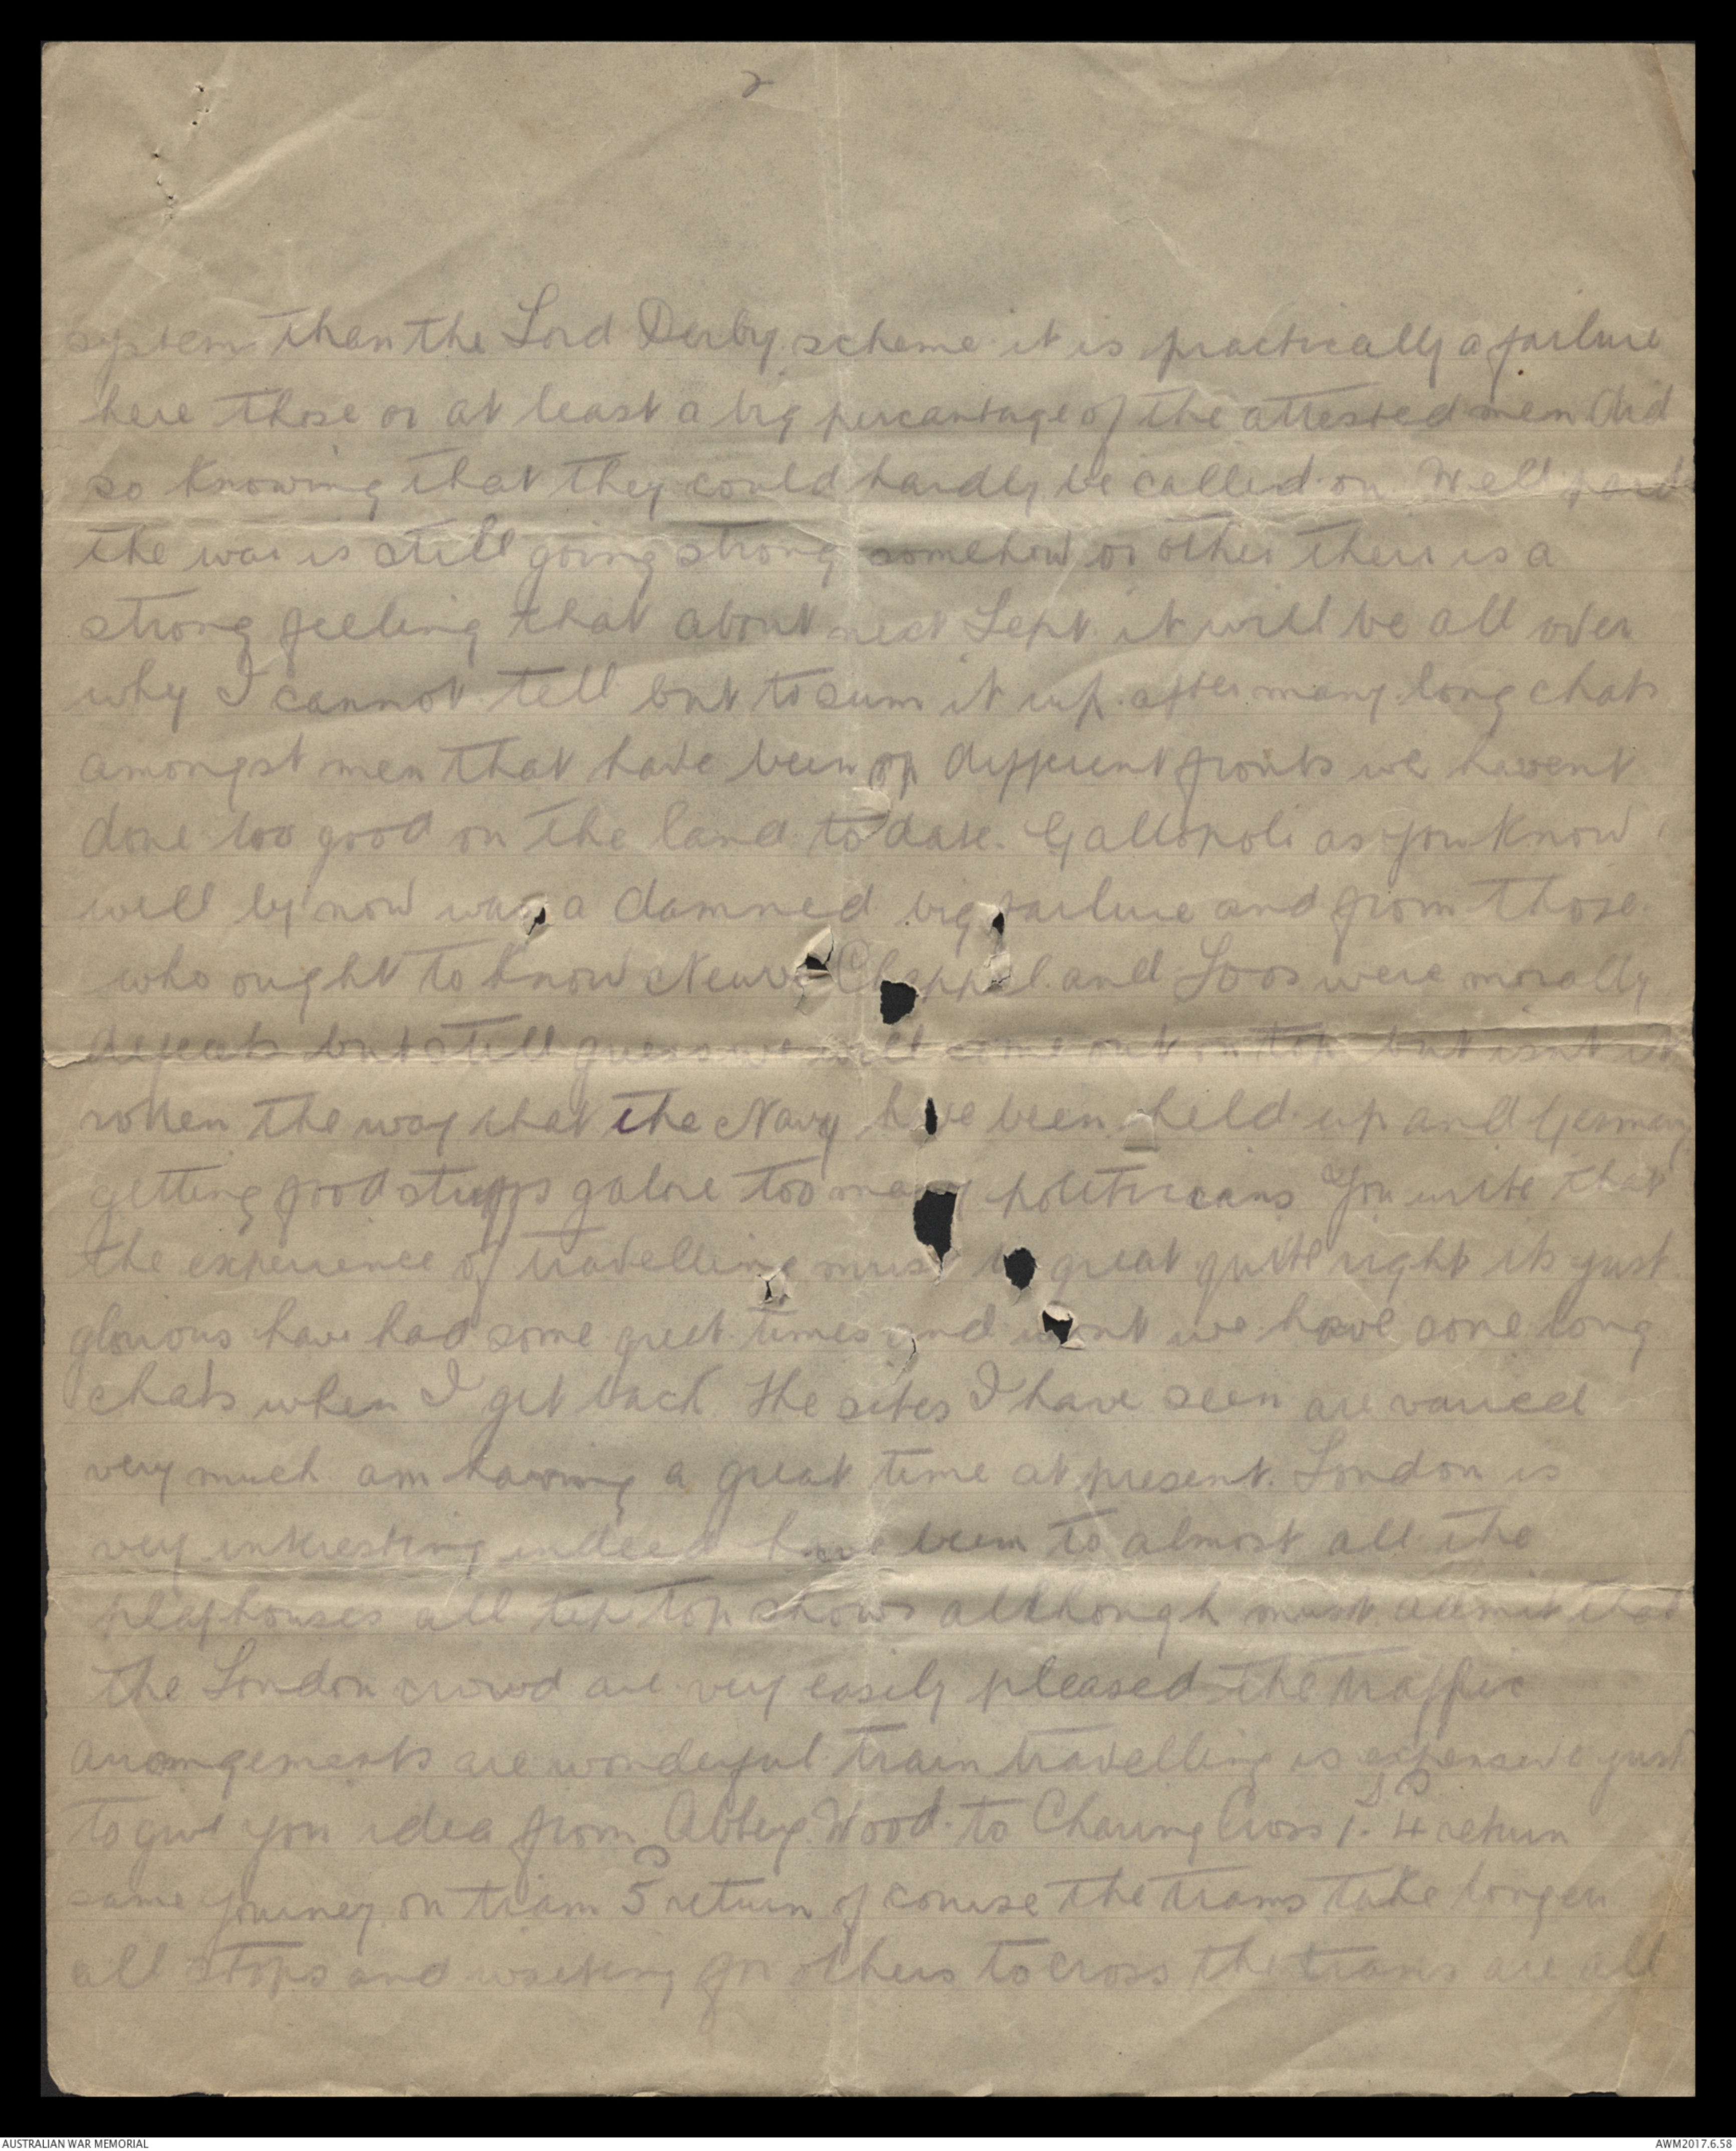 2
system than the Lord Derby scheme it is practically a failure
here those or at least a big percantage of the attested men did
so knowing that they could hardly be called on Well
the war is still going strong somehow or other there is a
strong feeling that about next Sept. it will be all over
why I cannot tell but to sum it up after many long chats
amongst men that have been on different fronts we havent
done too good on the land to date. Gallopoli as you know
well by now was a damned big failure and from those
who ought to know Neuve Chappel and Loos were morally
defeats but still guess we will come out on top but isnt it
rotten the way that the Navy have been held up and Germany
getting foodstuffs galore too many politicians You write that
the experience of travelling must be great quite right its just
glorious have had some great times and wont we have some long
chats when I get back. The sites I have seen are varied
very much am having a great time at present. London is
very interesting indeed have been to almost all the
playhouses all tip top shows although must admit that
the London crowd are very easily pleased the traffic
arrangements are wonderful train travelling is expensive just
to give you idea from Abbey Wood to Charing Cross 1s. 4D return
same journey on tram 5D return of course the trams take longer
all stops and waiting for others to cross the trams are all
AUSTRALIAN WAR MEMORIAL
AWM2017.6.58